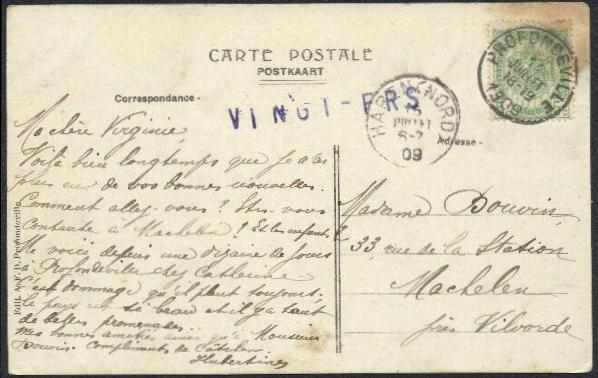 CARTE POSTALE
POSTKAART
Correspondance-
Adresse-
VINGT-FRS
PROFONDEVILLE
1909
NORD
JUILLET
09
Edit.
Profondeville
Ma chère Virginie,
Voilà bien longtemps que je n'ai
plus eu de vos bonnes nouvelles.
Comment allez-vous? Etes-vous
contente à Machelen? Et les enfants?
Me voici depuis une dizaine de jours
à Profondeville chez Catherine.
C'est dommage qu'il pleut toujours,
le pays est si beau et il y a tant
de belles promenades.
mes bonnes amitiés ainsi qu'à Monsieur
Bouvin. Compliments de
Hubertine
Madame Bouvin,
33, rue de la Station
Machelen
près Vilvorde